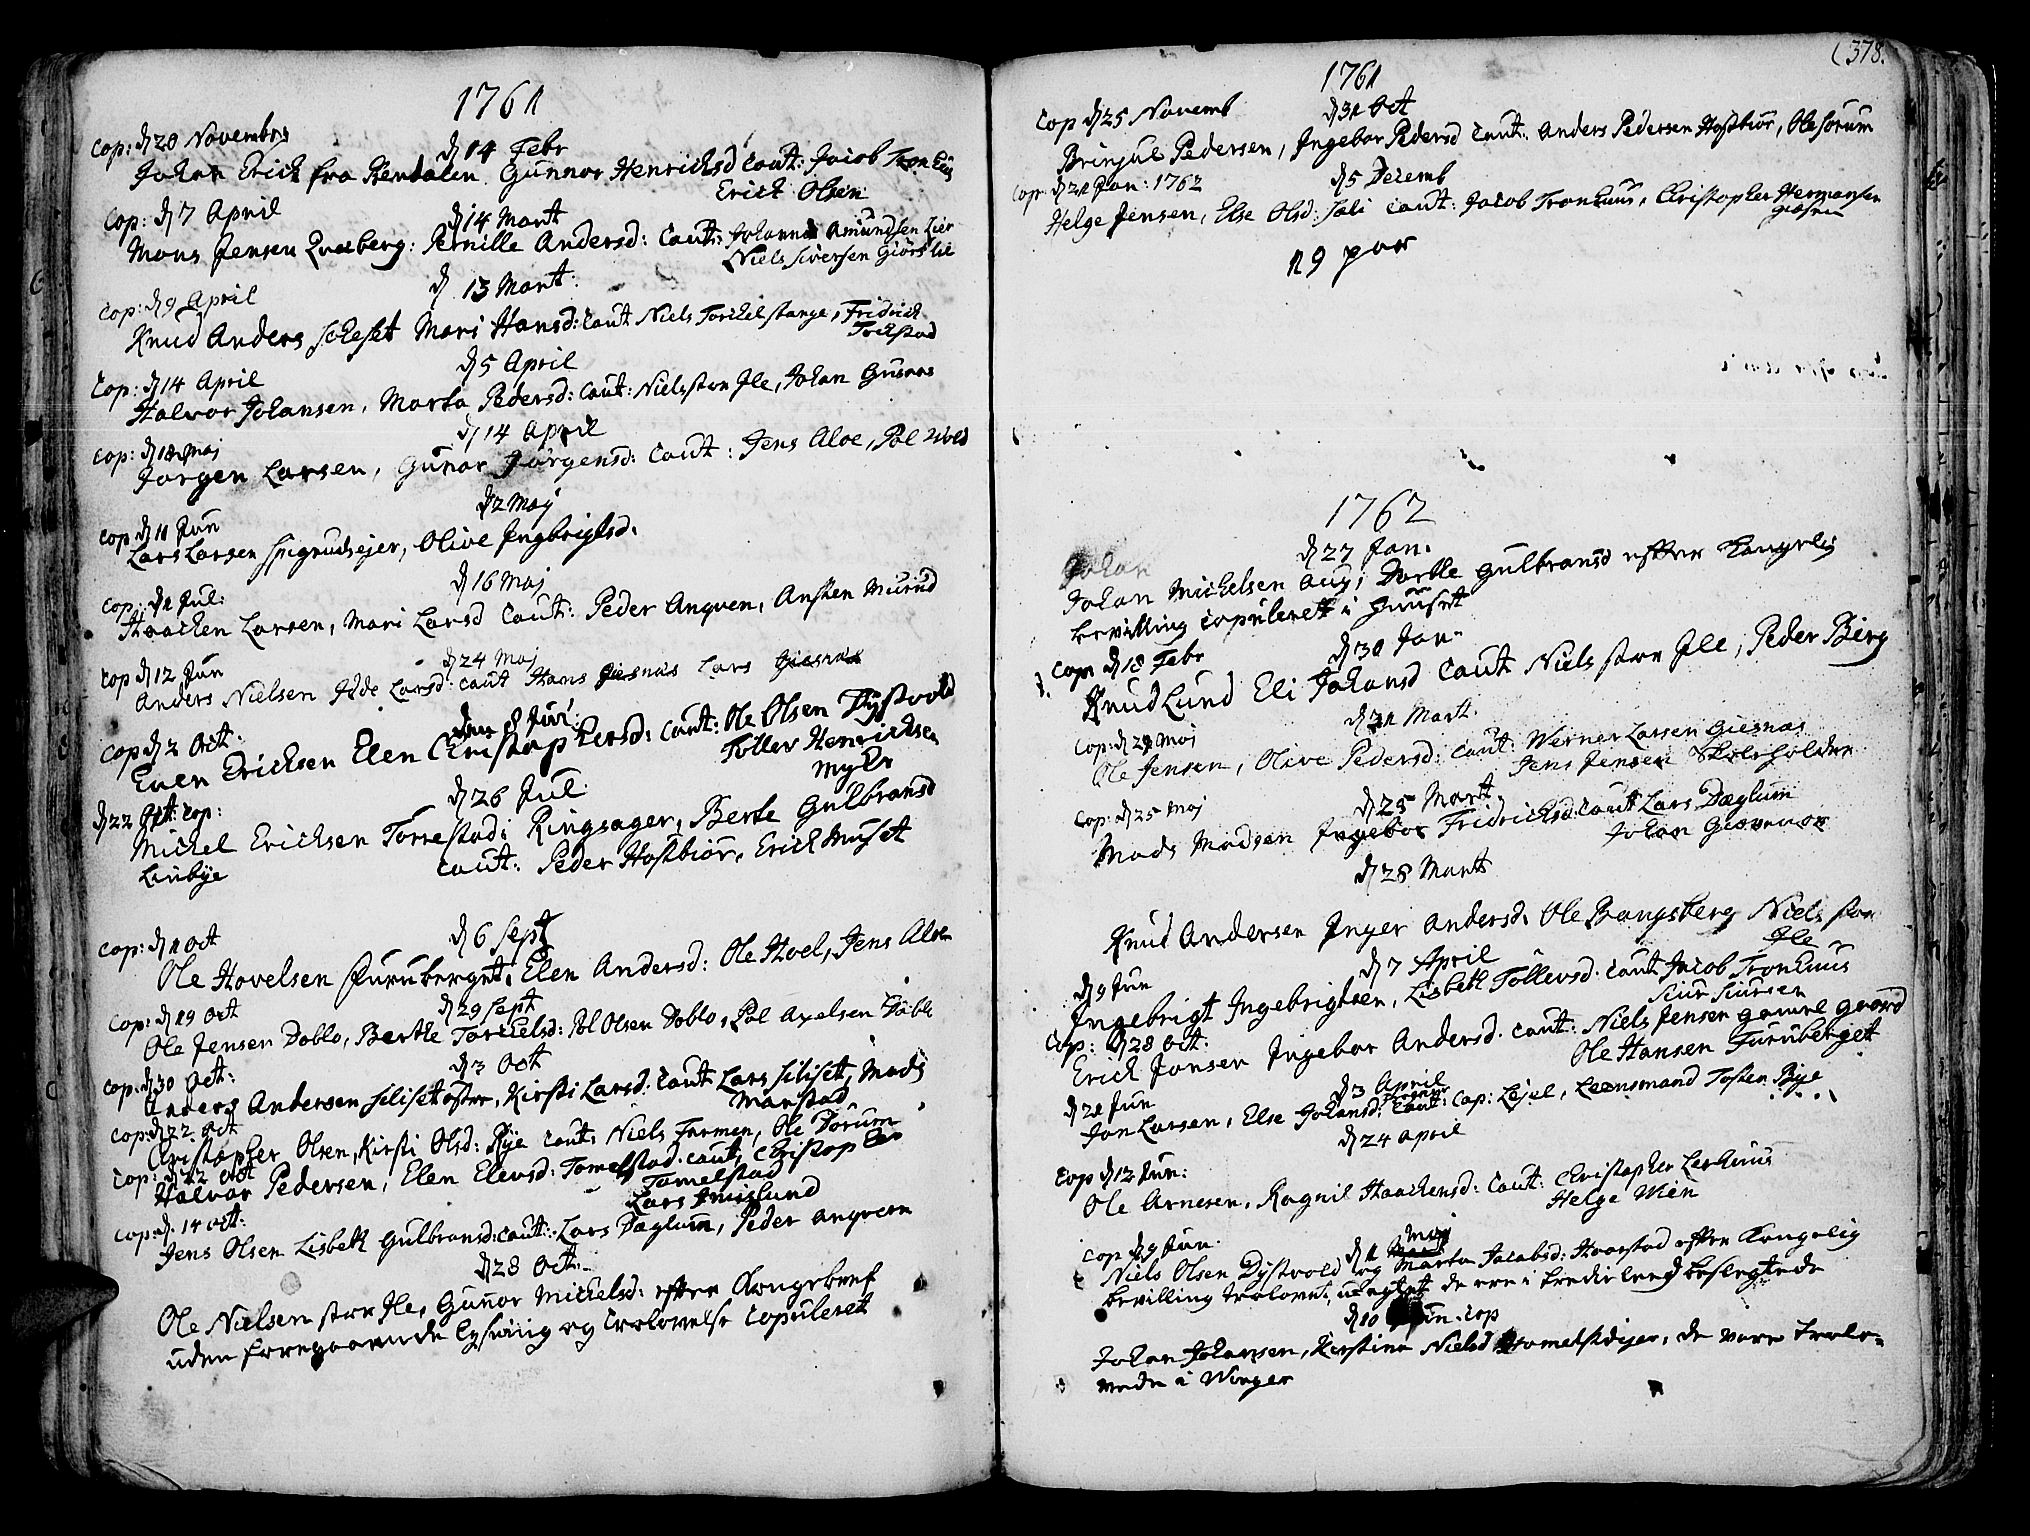 1761
Cop: d 20 Novembr d 14 Febr
Johan Erich fra Rendalen Gunnor Henrichsd Caut: Jacob
Erich Olsen
Cop: d 7 April d 14 Mart
Mons Jensen Qvæberg: Pernille Andersd: Caut: Johannes Amundsen Lier
Niels Siversen Giørslie
Cop: d 9 April d 13 Mart:
Knud Anders Mari Hansd: Caut Niels Torchelstange, Fridrich
Torkstad
Cop: d 14 April d 5 April
Halvor Johansen, Marta Pedersd: Caut: Niels store Ile, Johan Gusnas
Cop: d 18 Maj d 14 April
Jørgen Larsen, Gunor Jørgensd: Caut: Jens Aloe, Pol
d 2 Maj
Cop d 11 Jun
Lars Larsen Spigrudsejer, Olive Ingbrigtsd.
d 16 Maj
Cop: d 1 Jul:
Haachen Larsen, Mari Larsd Caut: Peder Angven, Ansten Murud
Cop d 12 Jun d 24 Maj
Anders Nielsen Idde Larsd: Caut Hans Giesnas Lars Giesnas
Cop d 2 Oct. den 8 Juni
Even Erichsen Elen Christophersd: Caut: Ole Olsen Dystvold
Tollev Henrichsen
Myhr
d 22 Oct: Cop: d 26 Jul:
Michel Erichsen Torrestad i Ringsager, Berte Gulbransd
Linbye Caut: Peder Hostbiør, Erich Muset
Cop: d 1 Oct d 6 Sept
Ole Hovelsen Furuberget: Elen Andersd: Ole Hoel, Jens Aloe
Cop: d 19 Oct d 29 Sept
Ole Jensen Doblo, Berthe Torchelsd: Pol Olsen Doblo, Pol Axelsen Doblo
Cop: d 30 Oct: d 3 Oct
Anders Andersen Siliset, Kirsti Larsd: Caut Lars Siliset, Mads
Marstad
Cop: d 22 Oct
Christopher Olsen, Kirsti Olsd: Rye Caut: Niels Furmen, Ole Dorum
Cop: d 22 Oct
Halvor Pedersen, Elen Elevsd: Tomelstad: Caut: Christopher
Tomelstad
Lars Imislund
Cop: d. 14 Oct:
Jens Olsen Lisbeth Gulbransd: Caut: Lars Dæglum, Peder Angvern
d 28 Oct:
Ole Nielsen store Ile, Gunor Michelsd: efter Kongebref
uden foregaaende lysning og trolovelse copuleret
(378.
1761
Cop d 25 Novemb d 31 Oct
Brinjul Pedersen, Ingebor Pedersd Caut: Anders Pedersen Hostbiør, Ole Sorum
Cop: d 21 Jan: 1762 d 5 Decemb
Helge Jensen, Else Olsd: Sæli Caut: Jacob Tronhuus, Christopher Hermansen
19 par
1762
d 22 Jan.
Johan
Johan Michelsen Aug, Dorthe Gulbransd efter Kongelig
bevilling copuleret i Huuset
Cop: d 18 Febr d 30 Jan
Knud Lund Eli Johansd Caut Niels store Ile, Peder Berg
d 21 Mart.
Cop: d 29 Maj
Ole Jensen, Olive Pedersd: Caut: Werner Larsen Giesnas
Jens Jensen Skoleholder
Cop: d 25 Maj d 25 Mart.
Mads Madsen Ingebor Fridrichsd: Caut Lars Dæglum
Johan
d 28 Marts
Knud Andersen Inger Andersd: Ole Bangsberg Niels store
Ile
d 9 Jun d 7 April
Ingebrigt Ingebrigtsen, Lisbeth Tollevsd: Caut Jacob Tronhuus
Siur Siursen
Cop: d 28 Oct:
Erich Jonsen Ingebor Andersd: Caut: Niels Jensen gamle gaard
Ole Hansen Furuberget
d 21 Jun d 3 April
Jon Larsen, Else Johansd: Caut: Cap: Lejel, Leensmand Tosten Bye
d 24 April
Cop d 12 Jun:
Ole Arnesen, Ragnil Haachensd: Caut: Christopher Lerhuus
Helge Wien
Cop d 9 Jun: d 11 Mart Maj
Niels Olsen Dystvold og Marta Jacobsd: Haarstad efter Kongelig
bevilling trolovet, uagtet de ere i tredie leed beslegtede
d 10 Jun: Cop
Johan Johansen, Kirstine Nielsd, de vare trolo-
vede i Winger